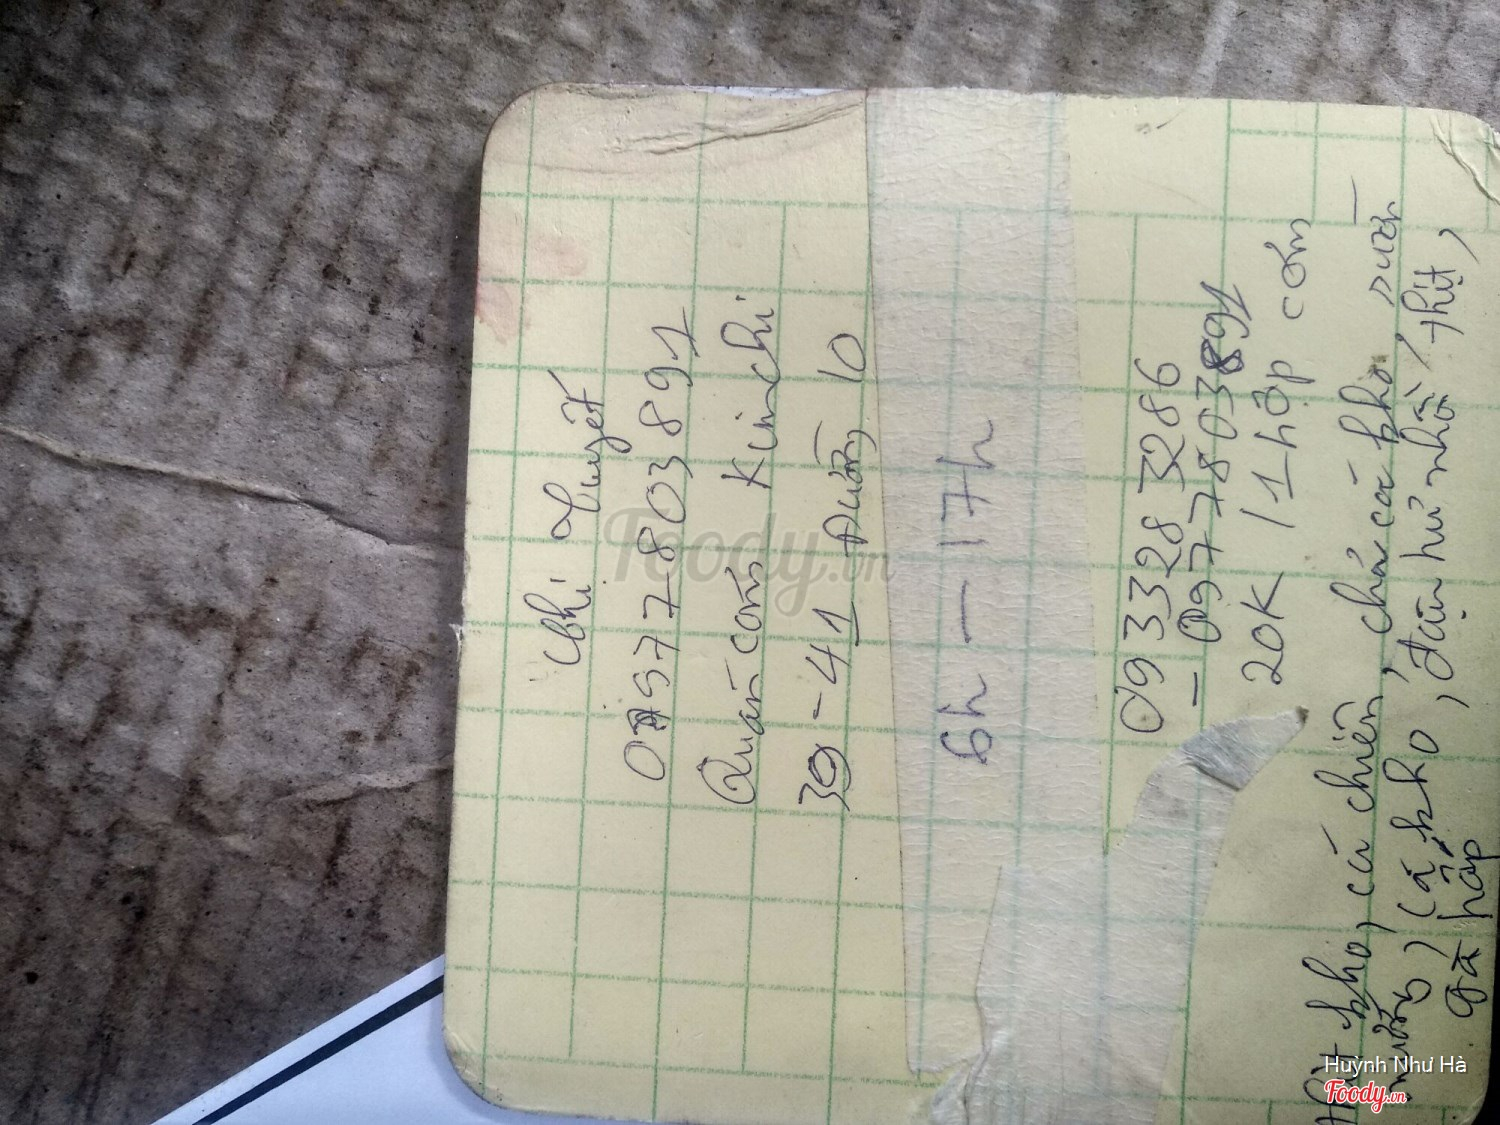 Chị Tuyết
0977803891
Quán cơm Kim chi
39-41 Đường 10
6h - 17h
0933283286
- 0977803891
20K / 1 hộp cơm
thịt kho, cá chiên, chả cá kho, sườn
nướng, cá kho, đậu hủ nhồi thịt,
gà hấp
Foody.vn
Huỳnh Như Hà
Foody.vn